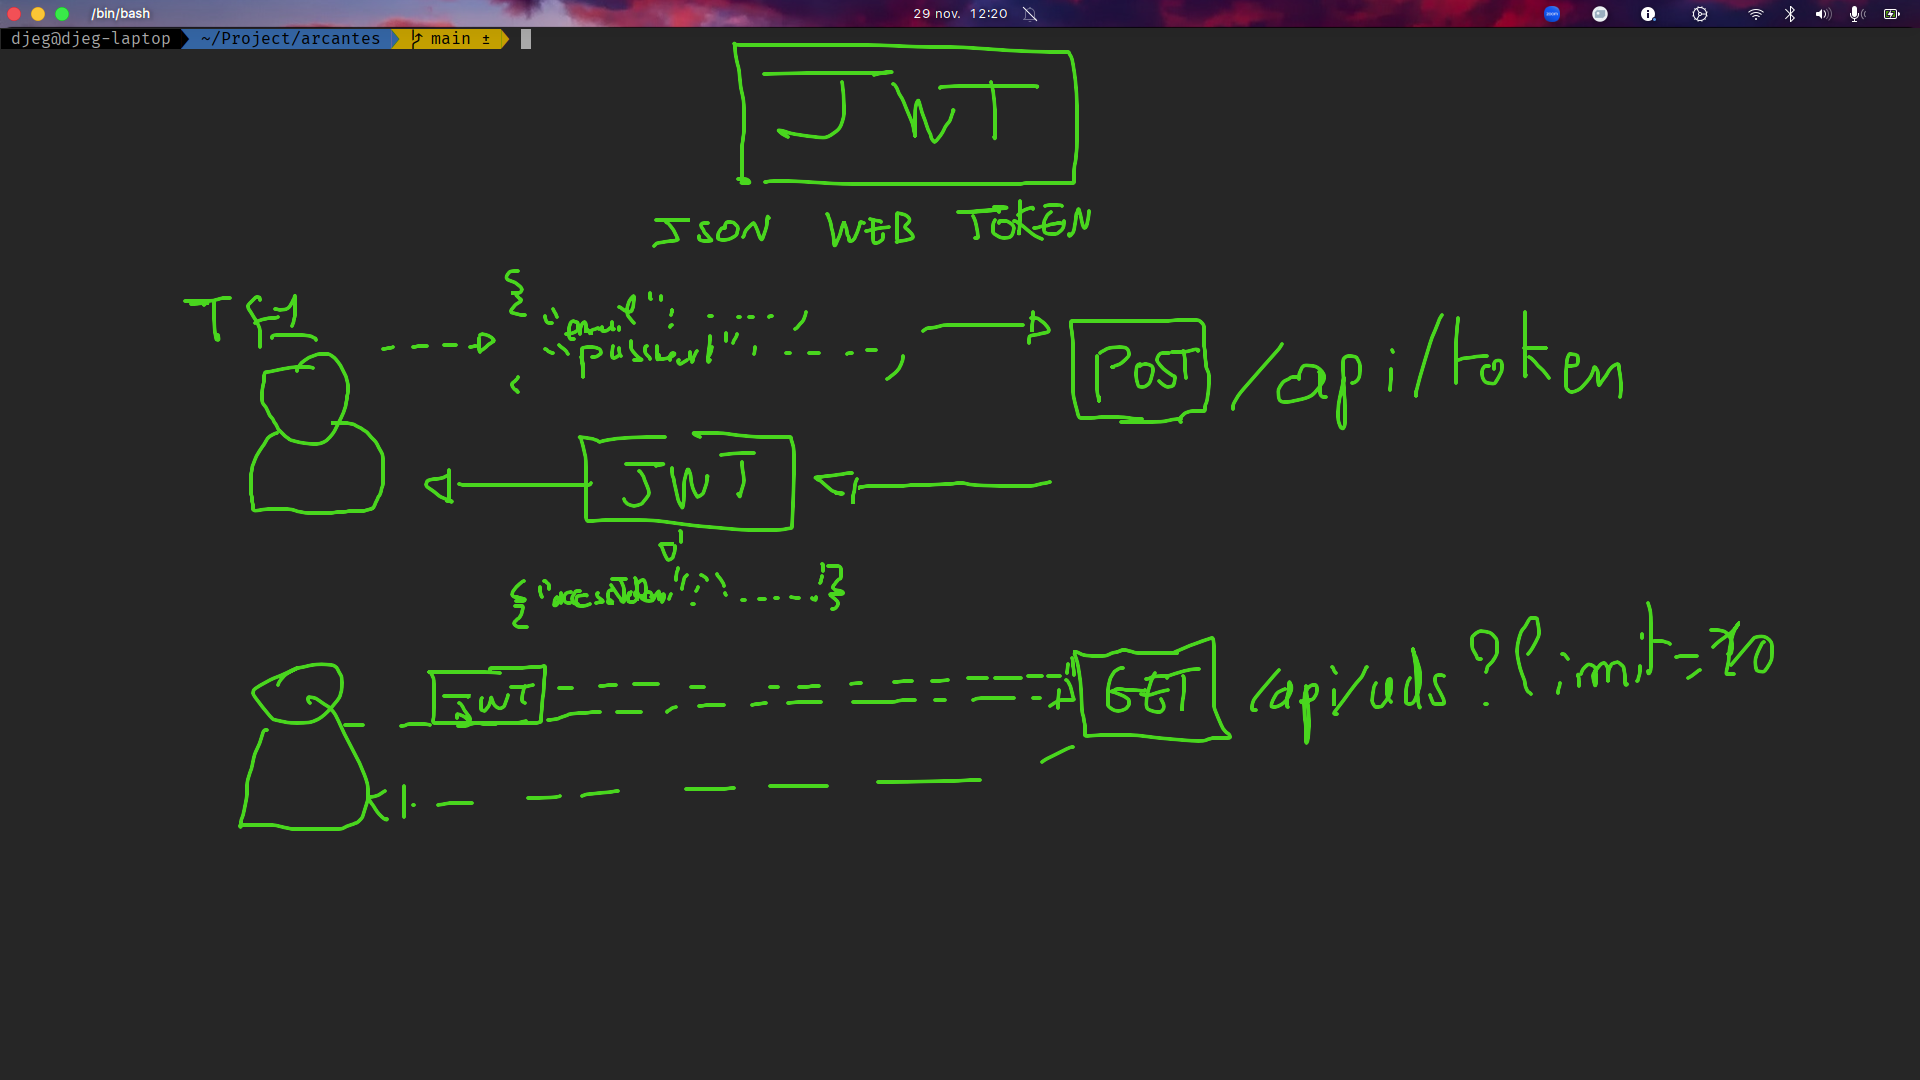 /bin/bash
29 nov. 12:20
zoom
djeg@djeg-laptop ~/Project/arcantes main ±
JWT
JSON WEB TOKEN
TF1
{
"email": .....,
"password": ....,
POST /api/token
JWT
{"accessToken": "......"}
JWT
GET /api/ads?limit=